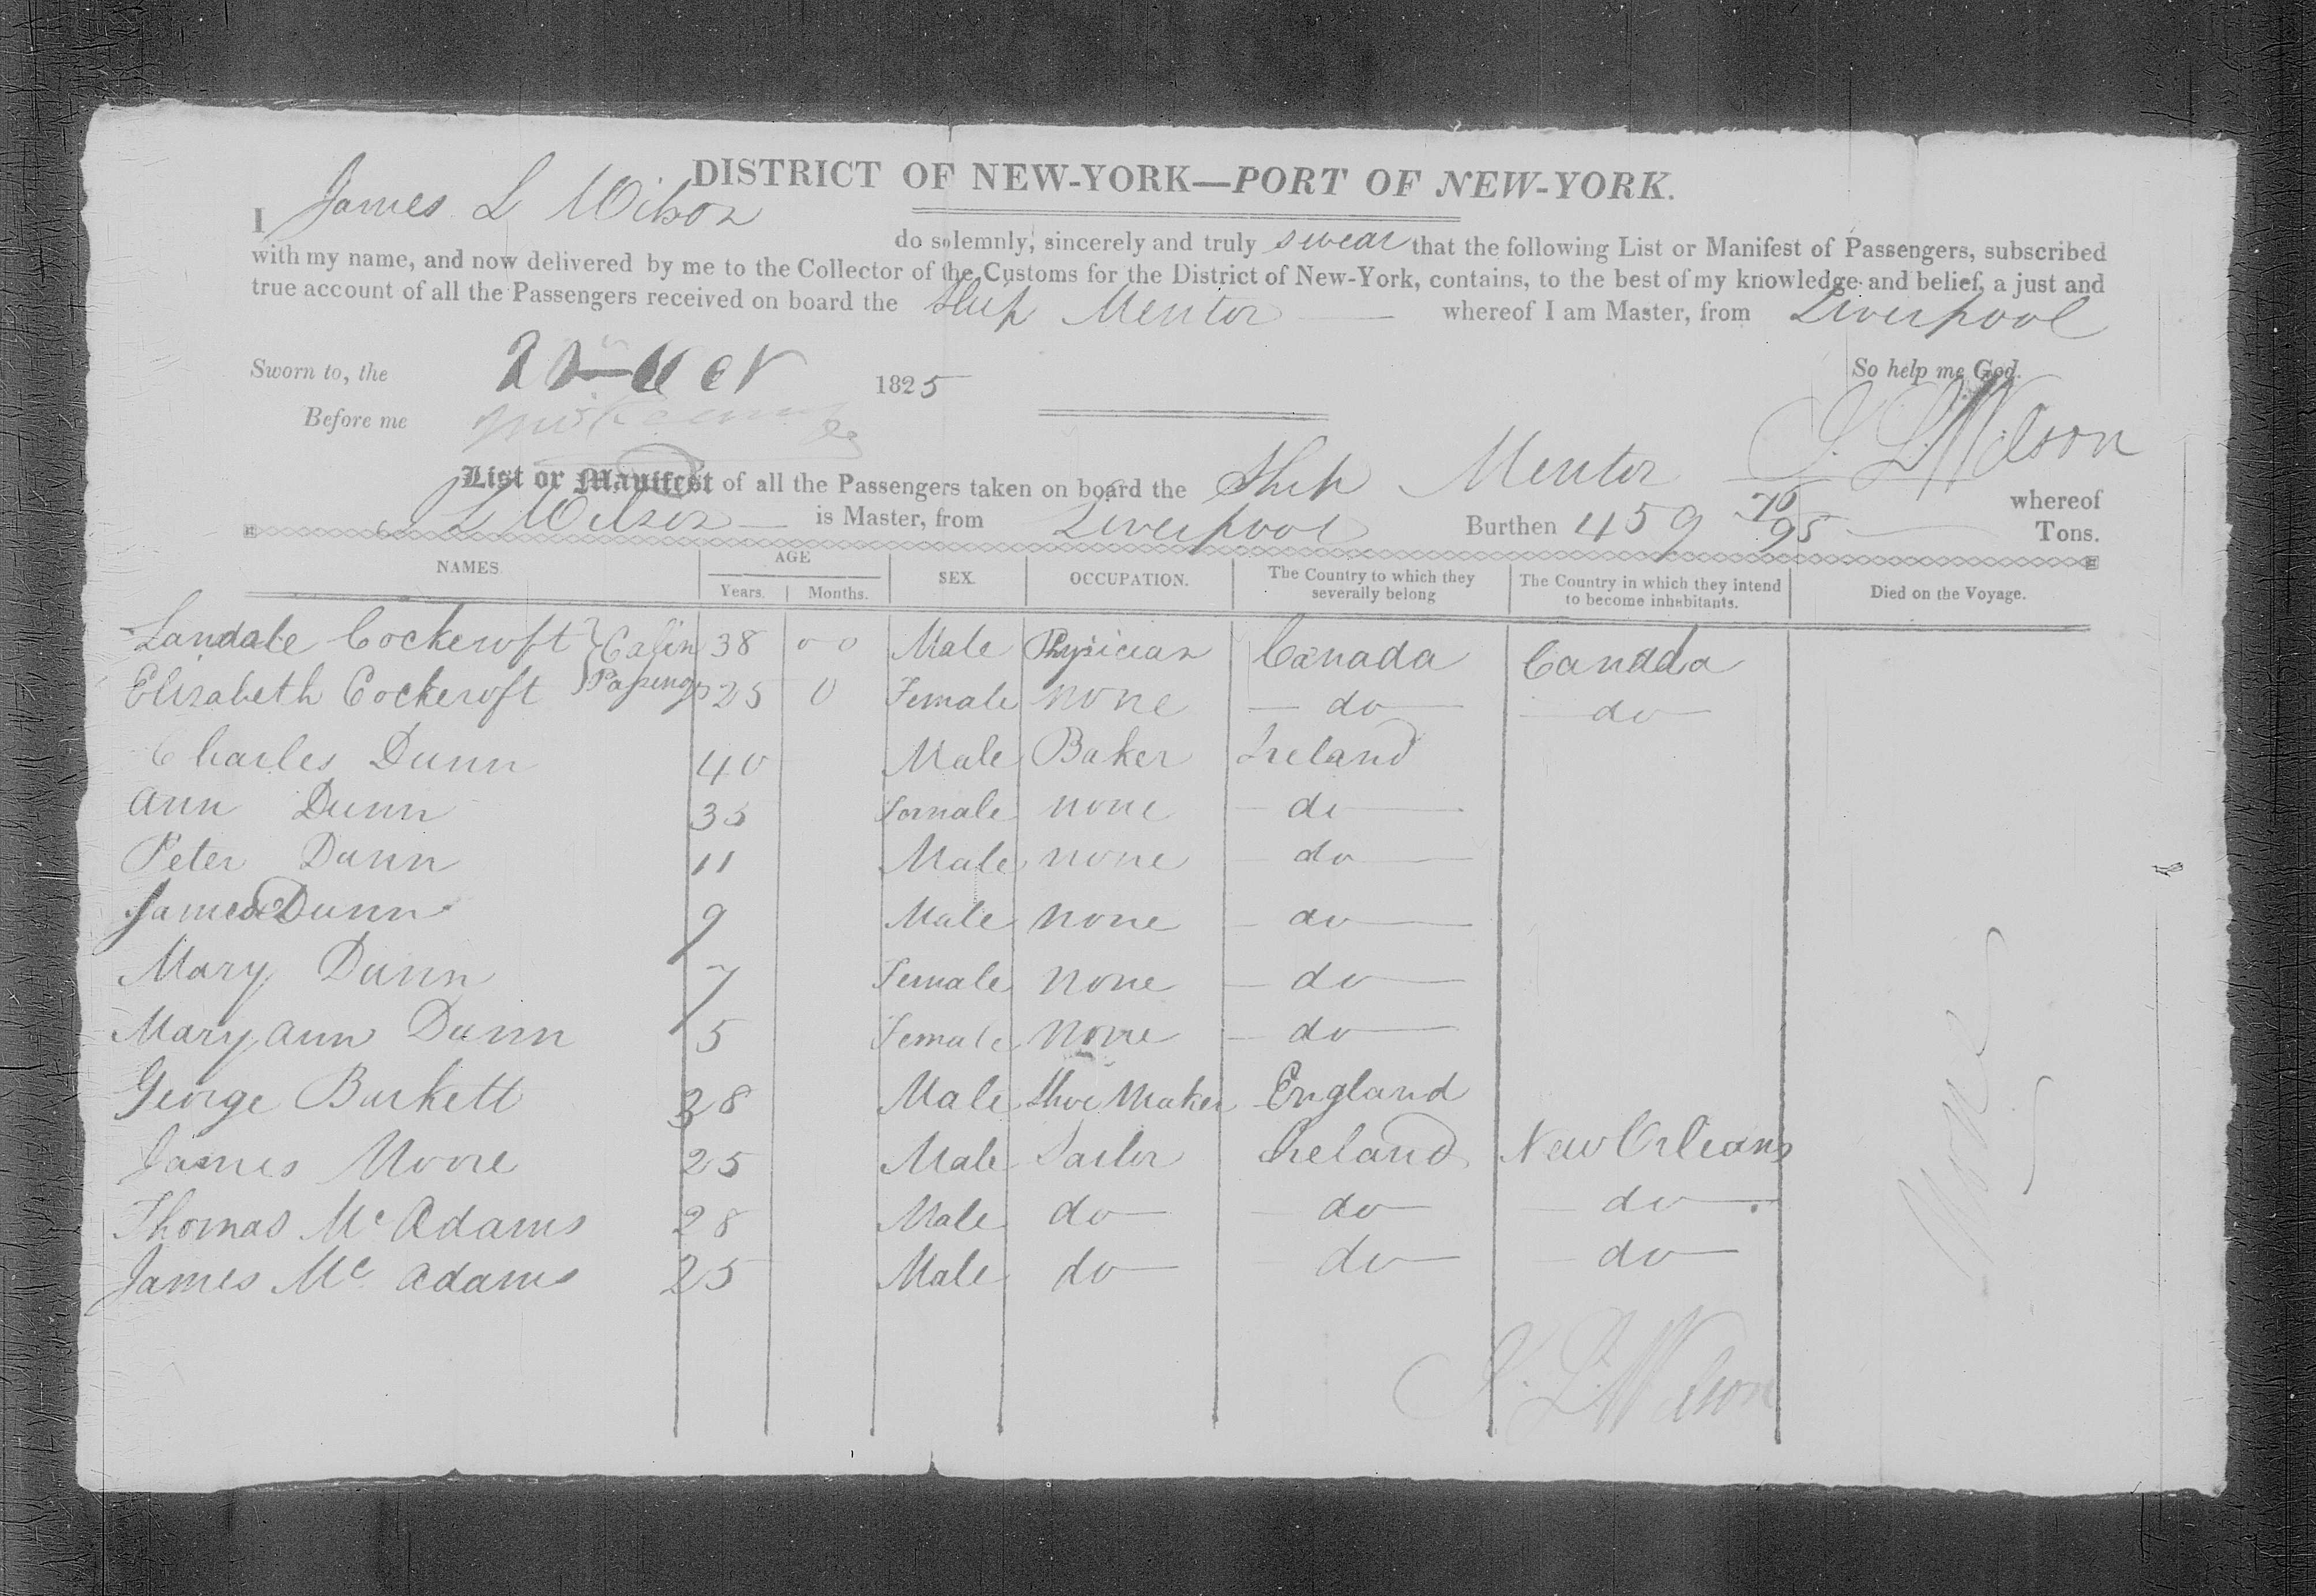 DISTRICT OF NEW-YORK—PORT OF NEW-YORK.
I James L Wilson do solemnly, sincerely and truly swear that the following List or Manifest of Passengers, subscribed
with my name, and now delivered by me to the Collector of the Customs for the District of New-York, contains, to the best of my knowledge and belief, a just and
true account of all the Passengers received on board the Ship Mentor whereof I am Master, from Liverpool
Sworn to, the 1825 So help me God.
Before me
J. L. Wilson
List or Manifest of all the Passengers taken on board the Ship Mentor whereof
L Wilson is Master, from Liverpool Burthen 459 70/95 Tons.
NAMES. AGE Years. Months. SEX. OCCUPATION. The Country to which they severally belong The Country in which they intend to become inhabitants. Died on the Voyage.
Landale Cockcroft } Cabin 38 00 Male Physician Canada Canada
Elizabeth Cockcroft } Passengs 25 0 Female none do do
Charles Dunn 40 Male Baker Ireland
Ann Dunn 35 Female none do
Peter Dunn 11 Male none do
James Dunn 9 Male none do
Mary Dunn 7 Female none do
Mary ann Dunn 5 Female none do
George Burkett 38 Male Shoe Maker England
James Moore 25 Male Sailor Ireland New Orleans
Thomas Mc Adams 28 Male do do do
James Mc Adams 25 Male do do do
None
J. L. Wilson